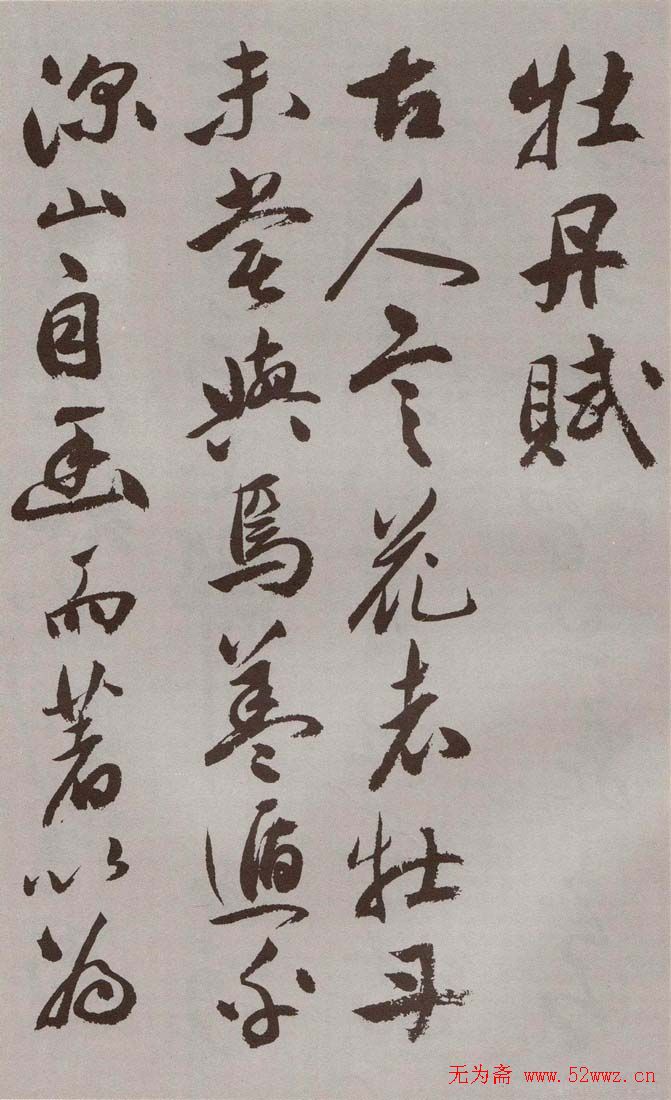 牡丹賦
古人言花者牡丹
未嘗與焉蓋遁乎
深山自幽而著以為
无为斋 www.52wwz.cn